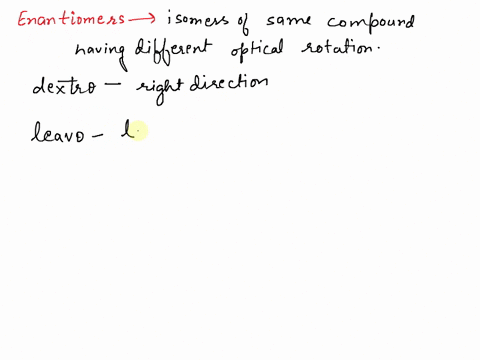 Enantiomers → isomers of same compound
having different optical rotation.
dextro — right direction
leavo — l